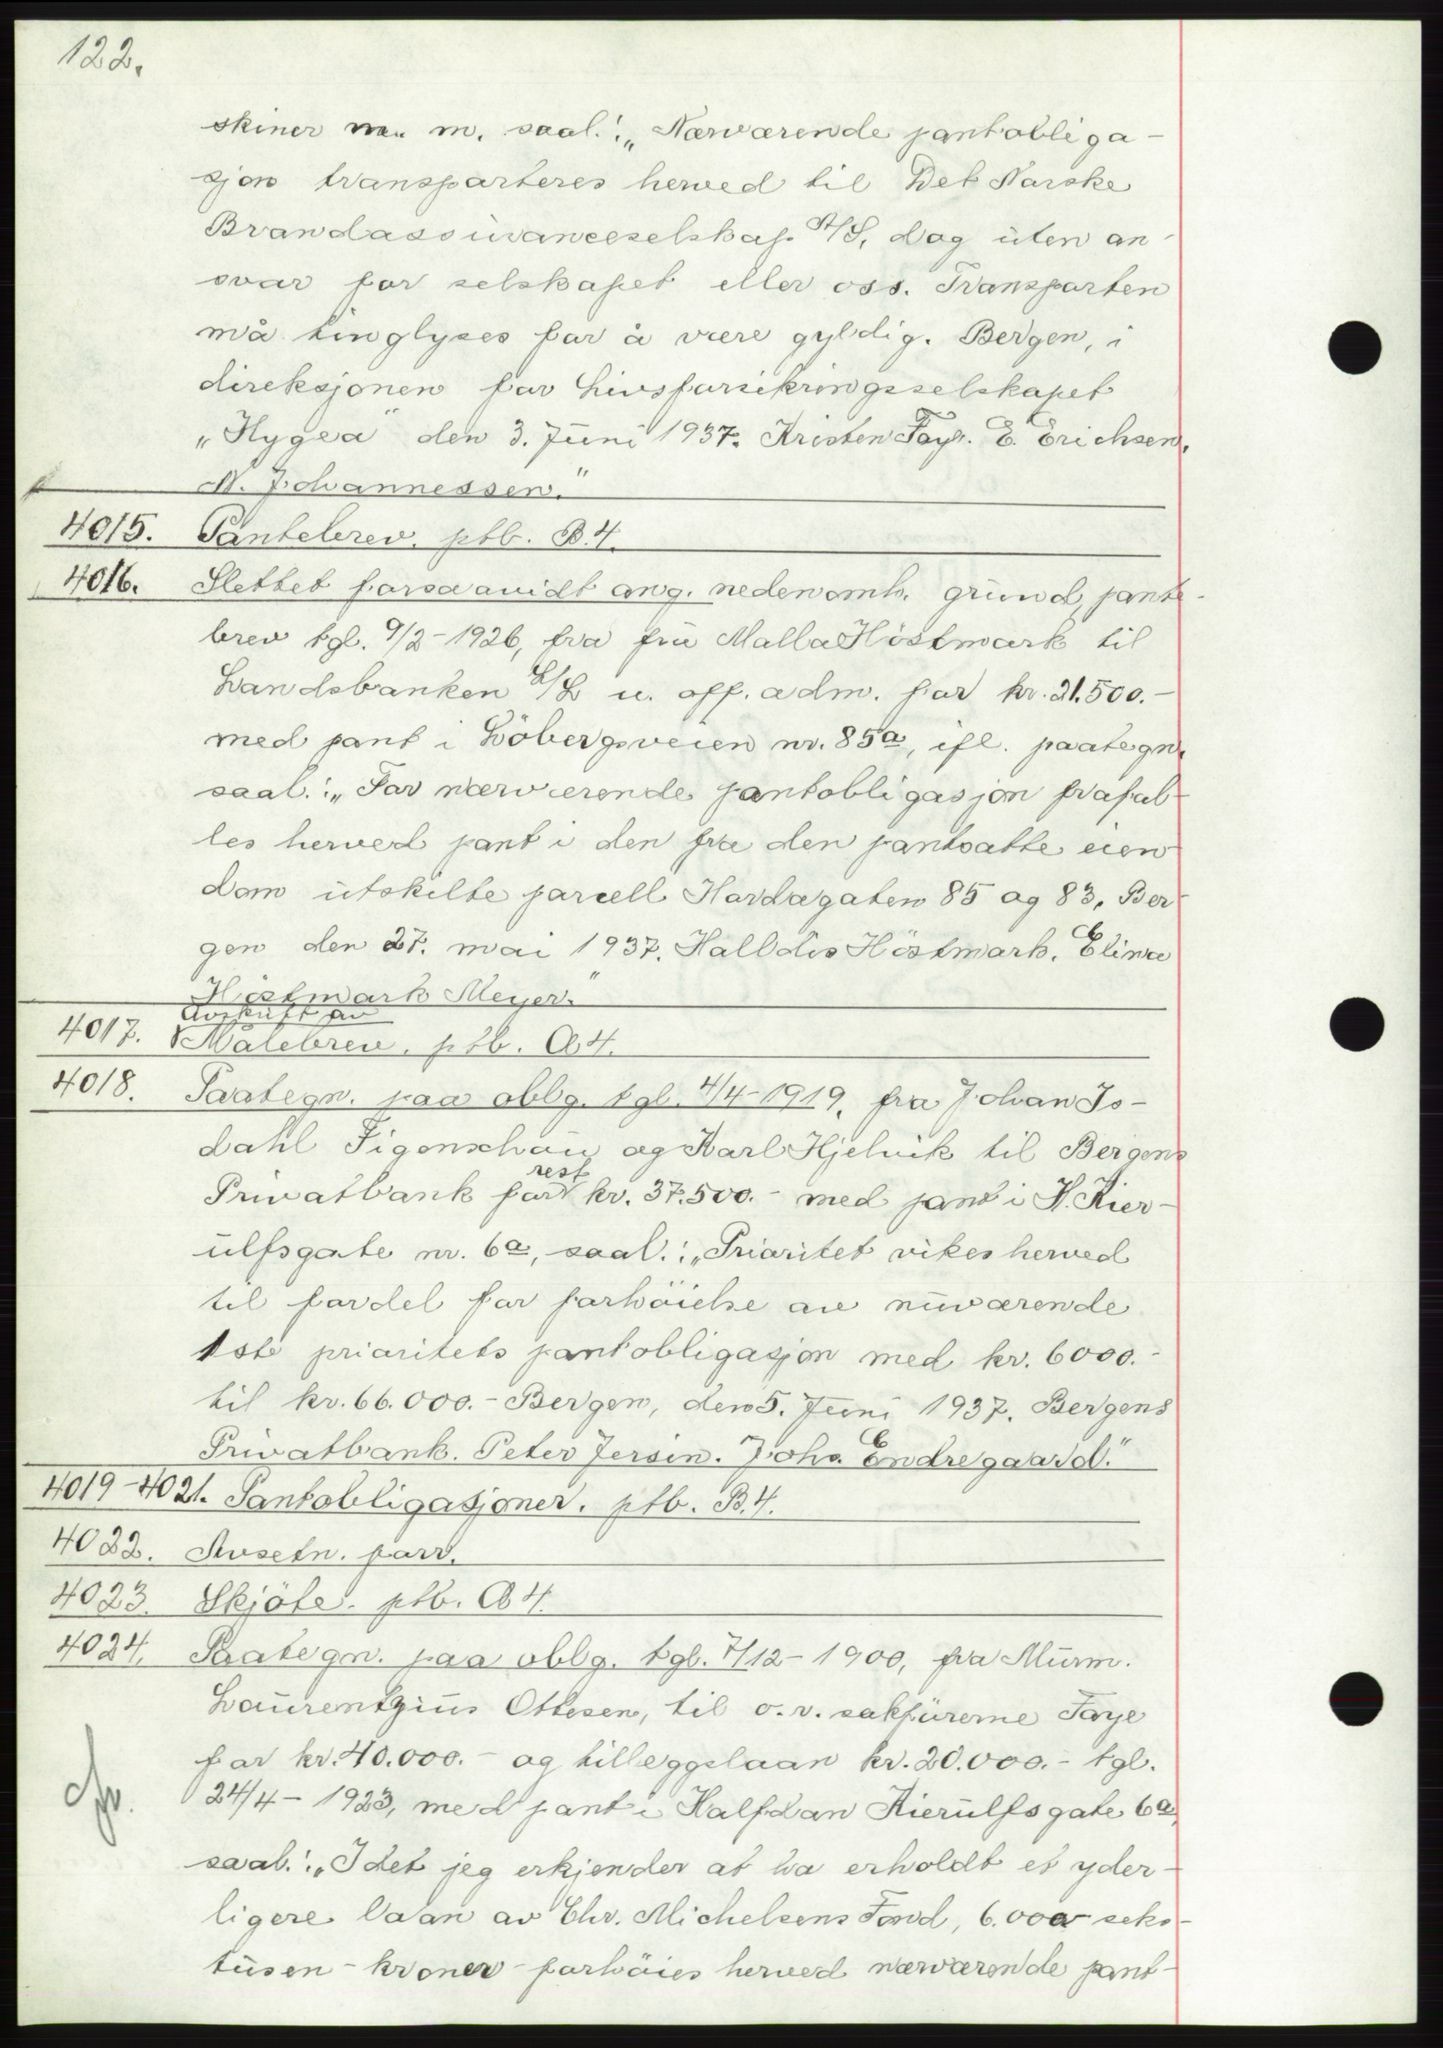 122.
skiner m. m. saal.: „Nærværende pantobliga-
sjon transporteres herved til Det Norske
Brandassuranceselskap A/S, dog uten an-
svar for selskapet eller oss. Transporten
må tinglyses for å være gyldig. Bergen, i
direksjonen for Livsforsikringsselskapet
„Hygea" den 3. Juni 1937. Kristen Faye. E. Erichsen.
N. Johannessen."
4015. Pantebrev. ptb. B.4.
4016. Slettet forsaavidt ang. nedenomh. grund, pante-
brev tgl. 9/2-1926, fra fru Malla Höstmark til
Landsbanken A/L u. off. adm. for kr. 21.500.-
med pant i Löbergsveien nr. 85a, ifl. paategn.
saal.: „For nærværende pantobligasjon frafal-
les herved pant i den fra den pantsatte eien-
dom utskilte parcell Hardagaten 85 og 83. Ber-
gen den 27. mai 1937. Halldis Höstmark. Elina
Höstmark Meyer."
Avskrift av
4017. Målebrev. ptb. A 4.
4018. Paategn. paa oblg. tgl. 4/4-1919, fra Johan Is-
dahl Figenschou og Karl Hjelvik til Bergens
rest
Privatbank for kr. 37.500.- med pant i H. Kier-
ulfsgate nr. 6a, saal.: „Prioritet vikes herved
til fordel for forhöielse av nuværende
1ste prioritets pantobligasjon med kr. 6000.-
til kr. 66.000.- Bergen, den 5. Juni 1937. Bergens
Privatbank. Peter Jersin. Johs. Endregaard."
4019-4021. Pantobligasjoner. ptb. B.4.
4022. Avsetn. forr.
4023. Skjöte. ptb. A 4.
4024. Paategn. paa oblg. tgl. 7/12-1900, fra Murm.
Laurentzius Ottesen, til o.r. sakfürerne Faye
for kr. 40.000.- og tilleggslaan kr. 20.000.- tgl.
24/4-1923, med pant i Halfdan Kierulfsgate 6a,
saal.: „Idet jeg erkjender at ha erholdt et yder-
ligere laan av Chr. Michelsens Fond, 6.000 seks-
tusen - kroner - forhöies herved nærværende pant-